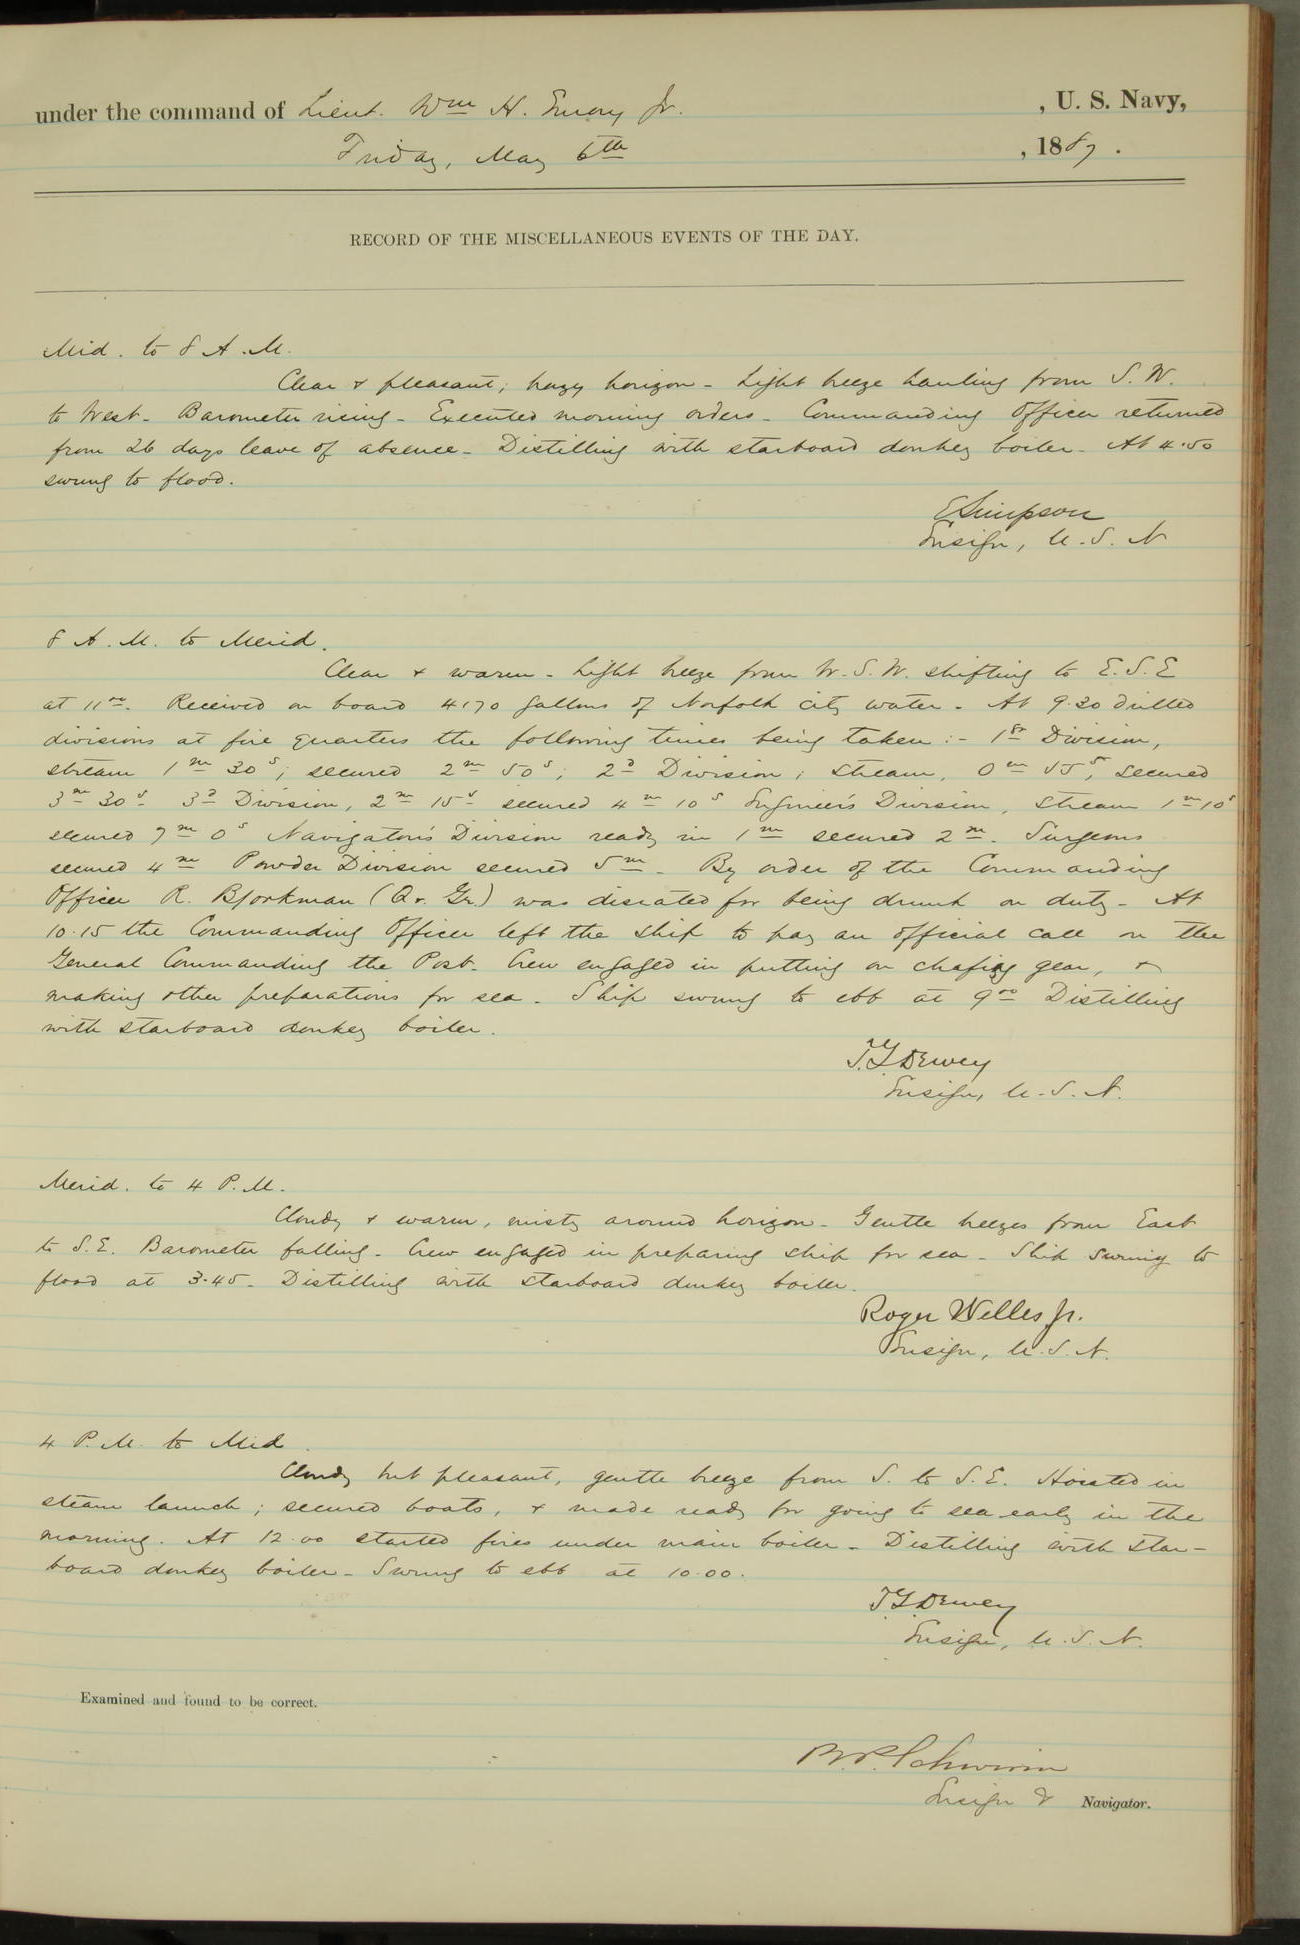 under the command of Lieut. Wm H. Emory Jr. , U. S. Navy,
Friday, May 6th , 1887.
RECORD OF THE MISCELLANEOUS EVENTS OF THE DAY.
Mid. to 8 A.M.
Clear & pleasant; hazy horizon - Light breeze hauling from S.W.
to West - Barometer rising - Executed morning orders - Commanding Officer returned
from 26 days leave of absence - Distilling with starboard donkey boiler - At 4.50
swung to flood.
E Simpson
Ensign, U.S.N
8 A.M. to Merid.
Clear & warm - Light breeze from W.S.W. shifting to E.S.E
at 11 00. Received on board 4170 gallons of Norfolk city water - At 9.30 drilled
divisions at fire quarters the following times being taken :- 1st Division,
stream 1m 30s; secured 2m 50s; 2d Division; stream, 0m 55s, secured
3m 30s 3d Division, 2m 15s secured 4m 10s Engineer's Division, stream 1m 10s
secured 7m 0s Navigator's Division ready in 1m secured 2m. Surgeons
secured 4m Powder Division secured 5m - By order of the Commanding
Officer R. Bjorkman (Qr. Gr.) was disrated for being drunk on duty - At
10.15 the Commanding Officer left the ship to pay an official call on the
General Commanding the Post - Crew engaged in putting on chafing gear, &
making other preparations for sea - Ship swung to ebb at 9 00 Distilling
with starboard donkey boiler.
T.G. Dewey
Ensign, U.S.N.
Merid. to 4 P.M.
Cloudy & warm, misty around horizon - Gentle breezes from East
to S.E. Barometer falling - Crew engaged in preparing ship for sea - Ship swung to
flood at 3.45 - Distilling with starboard donkey boiler.
Roger Welles Jr.
Ensign, U.S.N.
4 P.M. to Mid.
Cloudy but pleasant, gentle breeze from S. to S.E. Hoisted in
steam launch; secured boats, & made ready for going to sea early in the
morning. At 12.00 started fires under main boiler - Distilling with star-
board donkey boiler - Swung to ebb at 10.00.
T.G. Dewey
Ensign, U.S.N.
Examined and found to be correct.
R.P. Schwerin
Ensign & Navigator.